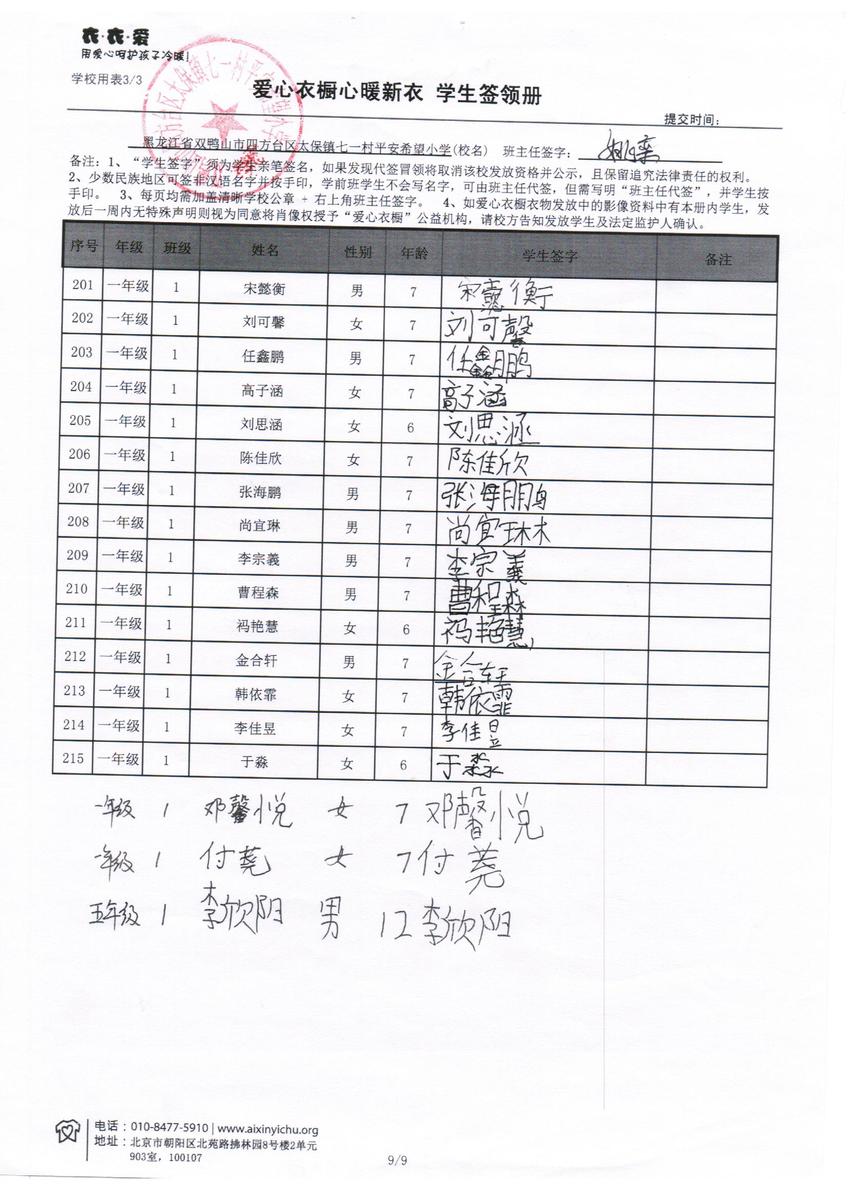 衣·衣·爱
用爱心呵护孩子冷暖!
学校用表3/3
爱心衣橱心暖新衣 学生签领册
提交时间:
黑龙江省双鸭山市四方台区太保镇七一村平安希望小学(校名) 班主任签字:
备注: 1、“学生签字”须为学生亲笔签名,如果发现代签冒领将取消该校发放资格并公示,且保留追究法律责任的权利。
2、少数民族地区可签非汉语名字并按手印,学前班学生不会写名字,可由班主任代签,但需写明“班主任代签”,并学生按
手印。 3、每页均需加盖清晰学校公章 + 右上角班主任签字。 4、如爱心衣橱衣物发放中的影像资料中有本册内学生,发
放后一周内无特殊声明则视为同意将肖像权授予“爱心衣橱”公益机构,请校方告知发放学生及法定监护人确认。
序号 年级 班级 姓名 性别 年龄 学生签字 备注
201 一年级 1 宋懿衡 男 7 宋懿衡
202 一年级 1 刘可馨 女 7 刘可馨
203 一年级 1 任鑫鹏 男 7 任鑫鹏
204 一年级 1 高子涵 女 7 高子涵
205 一年级 1 刘思涵 女 6 刘思涵
206 一年级 1 陈佳欣 女 7 陈佳欣
207 一年级 1 张海鹏 男 7 张海鹏
208 一年级 1 尚宜琳 男 7 尚宜琳
209 一年级 1 李宗義 男 7 李宗義
210 一年级 1 曹程森 男 7 曹程森
211 一年级 1 祃艳慧 女 6 祃艳慧
212 一年级 1 金合轩 男 7 金合轩
213 一年级 1 韩依霏 女 7 韩依霏
214 一年级 1 李佳昱 女 7 李佳昱
215 一年级 1 于淼 女 6 于淼
一年级 1 邓馨悦 女 7 邓馨悦
一年级 1 付荛 女 7 付荛
五年级 1 李欣阳 男 12 李欣阳
电话: 010-8477-5910 | www.aixinyichu.org
地址: 北京市朝阳区北苑路拂林园8号楼2单元
903室, 100107
9/9